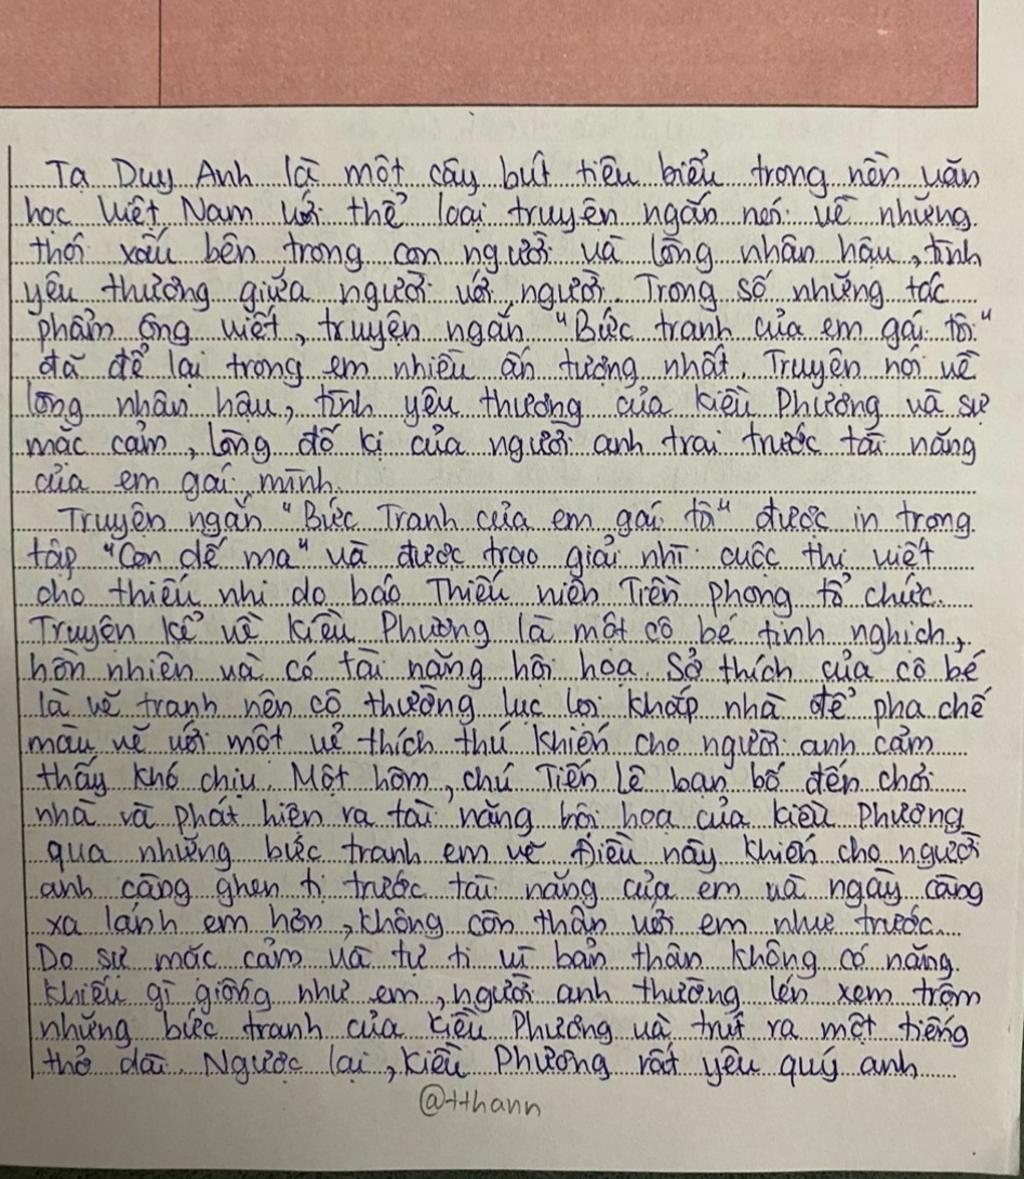 Tạ Duy Anh là một cây bút tiêu biểu trong nền văn
học Việt Nam với thể loại truyện ngắn nói về những
thói xấu bên trong con người và lòng nhân hậu, tình
yêu thương giữa người với người. Trong số những tác
phẩm ông viết, truyện ngắn "Bức tranh của em gái tôi"
đã để lại trong em nhiều ấn tượng nhất. Truyện nói về
lòng nhân hậu, tình yêu thương của Kiều Phương và sự
mặc cảm, lòng đố kị của người anh trai trước tài năng
của em gái mình.
Truyện ngắn "Bức Tranh của em gái tôi" được in trong
tập "Con dế ma" và được trao giải nhì cuộc thi viết
cho thiếu nhi do báo Thiếu niên Tiền phong tổ chức.
Truyện kể về Kiều Phương là một cô bé tinh nghịch,
hồn nhiên và có tài năng hội họa. Sở thích của cô bé
là vẽ tranh nên cô thường lục lọi khắp nhà để pha chế
màu vẽ với một vẻ thích thú khiến cho người anh cảm
thấy khó chịu. Một hôm, chú Tiến Lê bạn bố đến chơi
nhà và phát hiện ra tài năng hội họa của Kiều Phương
qua những bức tranh em vẽ. Điều này khiến cho người
anh càng ghen tị trước tài năng của em và ngày càng
xa lánh em hơn, không còn thân với em như trước.
Do sự mặc cảm và tự ti vì bản thân không có năng
khiếu gì giống như em, người anh thường lén xem trộm
những bức tranh của Kiều Phương và trút ra một tiếng
thở dài. Ngược lại, Kiều Phương rất yêu quý anh
@tthann